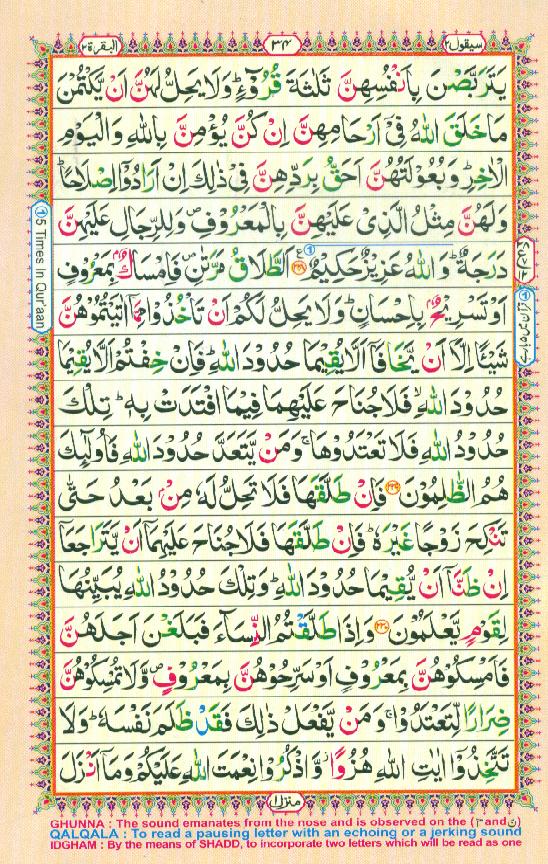 سيقول ٢ ٣٤ البقرة ٢
يَتَرَبَّصْنَ بِاَنْفُسِهِنَّ ثَلٰثَةَ قُرُوْٓءٍ ؕ وَلَا يَحِلُّ لَهُنَّ اَنْ يَّكْتُمْنَ
مَا خَلَقَ اللّٰهُ فِىْٓ اَرْحَامِهِنَّ اِنْ كُنَّ يُؤْمِنَّ بِاللّٰهِ وَالْيَوْمِ
الْاٰخِرِ ؕ وَبُعُوْلَتُهُنَّ اَحَقُّ بِرَدِّهِنَّ فِىْ ذٰلِكَ اِنْ اَرَادُوْٓا اِصْلَاحًا ؕ
وَلَهُنَّ مِثْلُ الَّذِىْ عَلَيْهِنَّ بِالْمَعْرُوْفِ ۪ وَلِلرِّجَالِ عَلَيْهِنَّ
دَرَجَةٌ ؕ وَاللّٰهُ عَزِيْزٌ حَكِيْمٌ ۟ ٢٢٨ اَلطَّلَاقُ مَرَّتٰنِ ۪ فَاِمْسَاكٌۢ بِمَعْرُوْفٍ
اَوْ تَسْرِيْحٌۢ بِاِحْسَانٍ ؕ وَلَا يَحِلُّ لَكُمْ اَنْ تَاْخُذُوْا مِمَّآ اٰتَيْتُمُوْهُنَّ
شَيْـًٔا اِلَّآ اَنْ يَّخَافَآ اَلَّا يُقِيْمَا حُدُوْدَ اللّٰهِ ؕ فَاِنْ خِفْتُمْ اَلَّا يُقِيْمَا
حُدُوْدَ اللّٰهِ ۙ فَلَا جُنَاحَ عَلَيْهِمَا فِيْمَا افْتَدَتْ بِهٖ ؕ تِلْكَ
حُدُوْدُ اللّٰهِ فَلَا تَعْتَدُوْهَا ۚ وَمَنْ يَّتَعَدَّ حُدُوْدَ اللّٰهِ فَاُولٰٓئِكَ
هُمُ الظّٰلِمُوْنَ ٢٢٩ فَاِنْ طَلَّقَهَا فَلَا تَحِلُّ لَهٗ مِنْۢ بَعْدُ حَتّٰى
تَنْكِحَ زَوْجًا غَيْرَهٗ ؕ فَاِنْ طَلَّقَهَا فَلَا جُنَاحَ عَلَيْهِمَآ اَنْ يَّتَرَاجَعَآ
اِنْ ظَنَّآ اَنْ يُّقِيْمَا حُدُوْدَ اللّٰهِ ؕ وَتِلْكَ حُدُوْدُ اللّٰهِ يُبَيِّنُهَا
لِقَوْمٍ يَّعْلَمُوْنَ ٢٣٠ وَاِذَا طَلَّقْتُمُ النِّسَآءَ فَبَلَغْنَ اَجَلَهُنَّ
فَاَمْسِكُوْهُنَّ بِمَعْرُوْفٍ اَوْ سَرِّحُوْهُنَّ بِمَعْرُوْفٍ ۪ وَّلَا تُمْسِكُوْهُنَّ
ضِرَارًا لِّتَعْتَدُوْا ۚ وَمَنْ يَّفْعَلْ ذٰلِكَ فَقَدْ ظَلَمَ نَفْسَهٗ ؕ وَلَا
تَتَّخِذُوْٓا اٰيٰتِ اللّٰهِ هُزُوًا ؗ وَّاذْكُرُوْا نِعْمَتَ اللّٰهِ عَلَيْكُمْ وَمَآ اَنْزَلَ
منزل ١
① 5 Times in Qur'aan
GHUNNA : The sound emanates from the nose and is observed on the (م and ن)
QALQALA : To read a pausing letter with an echoing or a jerking sound
IDGHAM : By the means of SHADD, to incorporate two letters which will be read as one